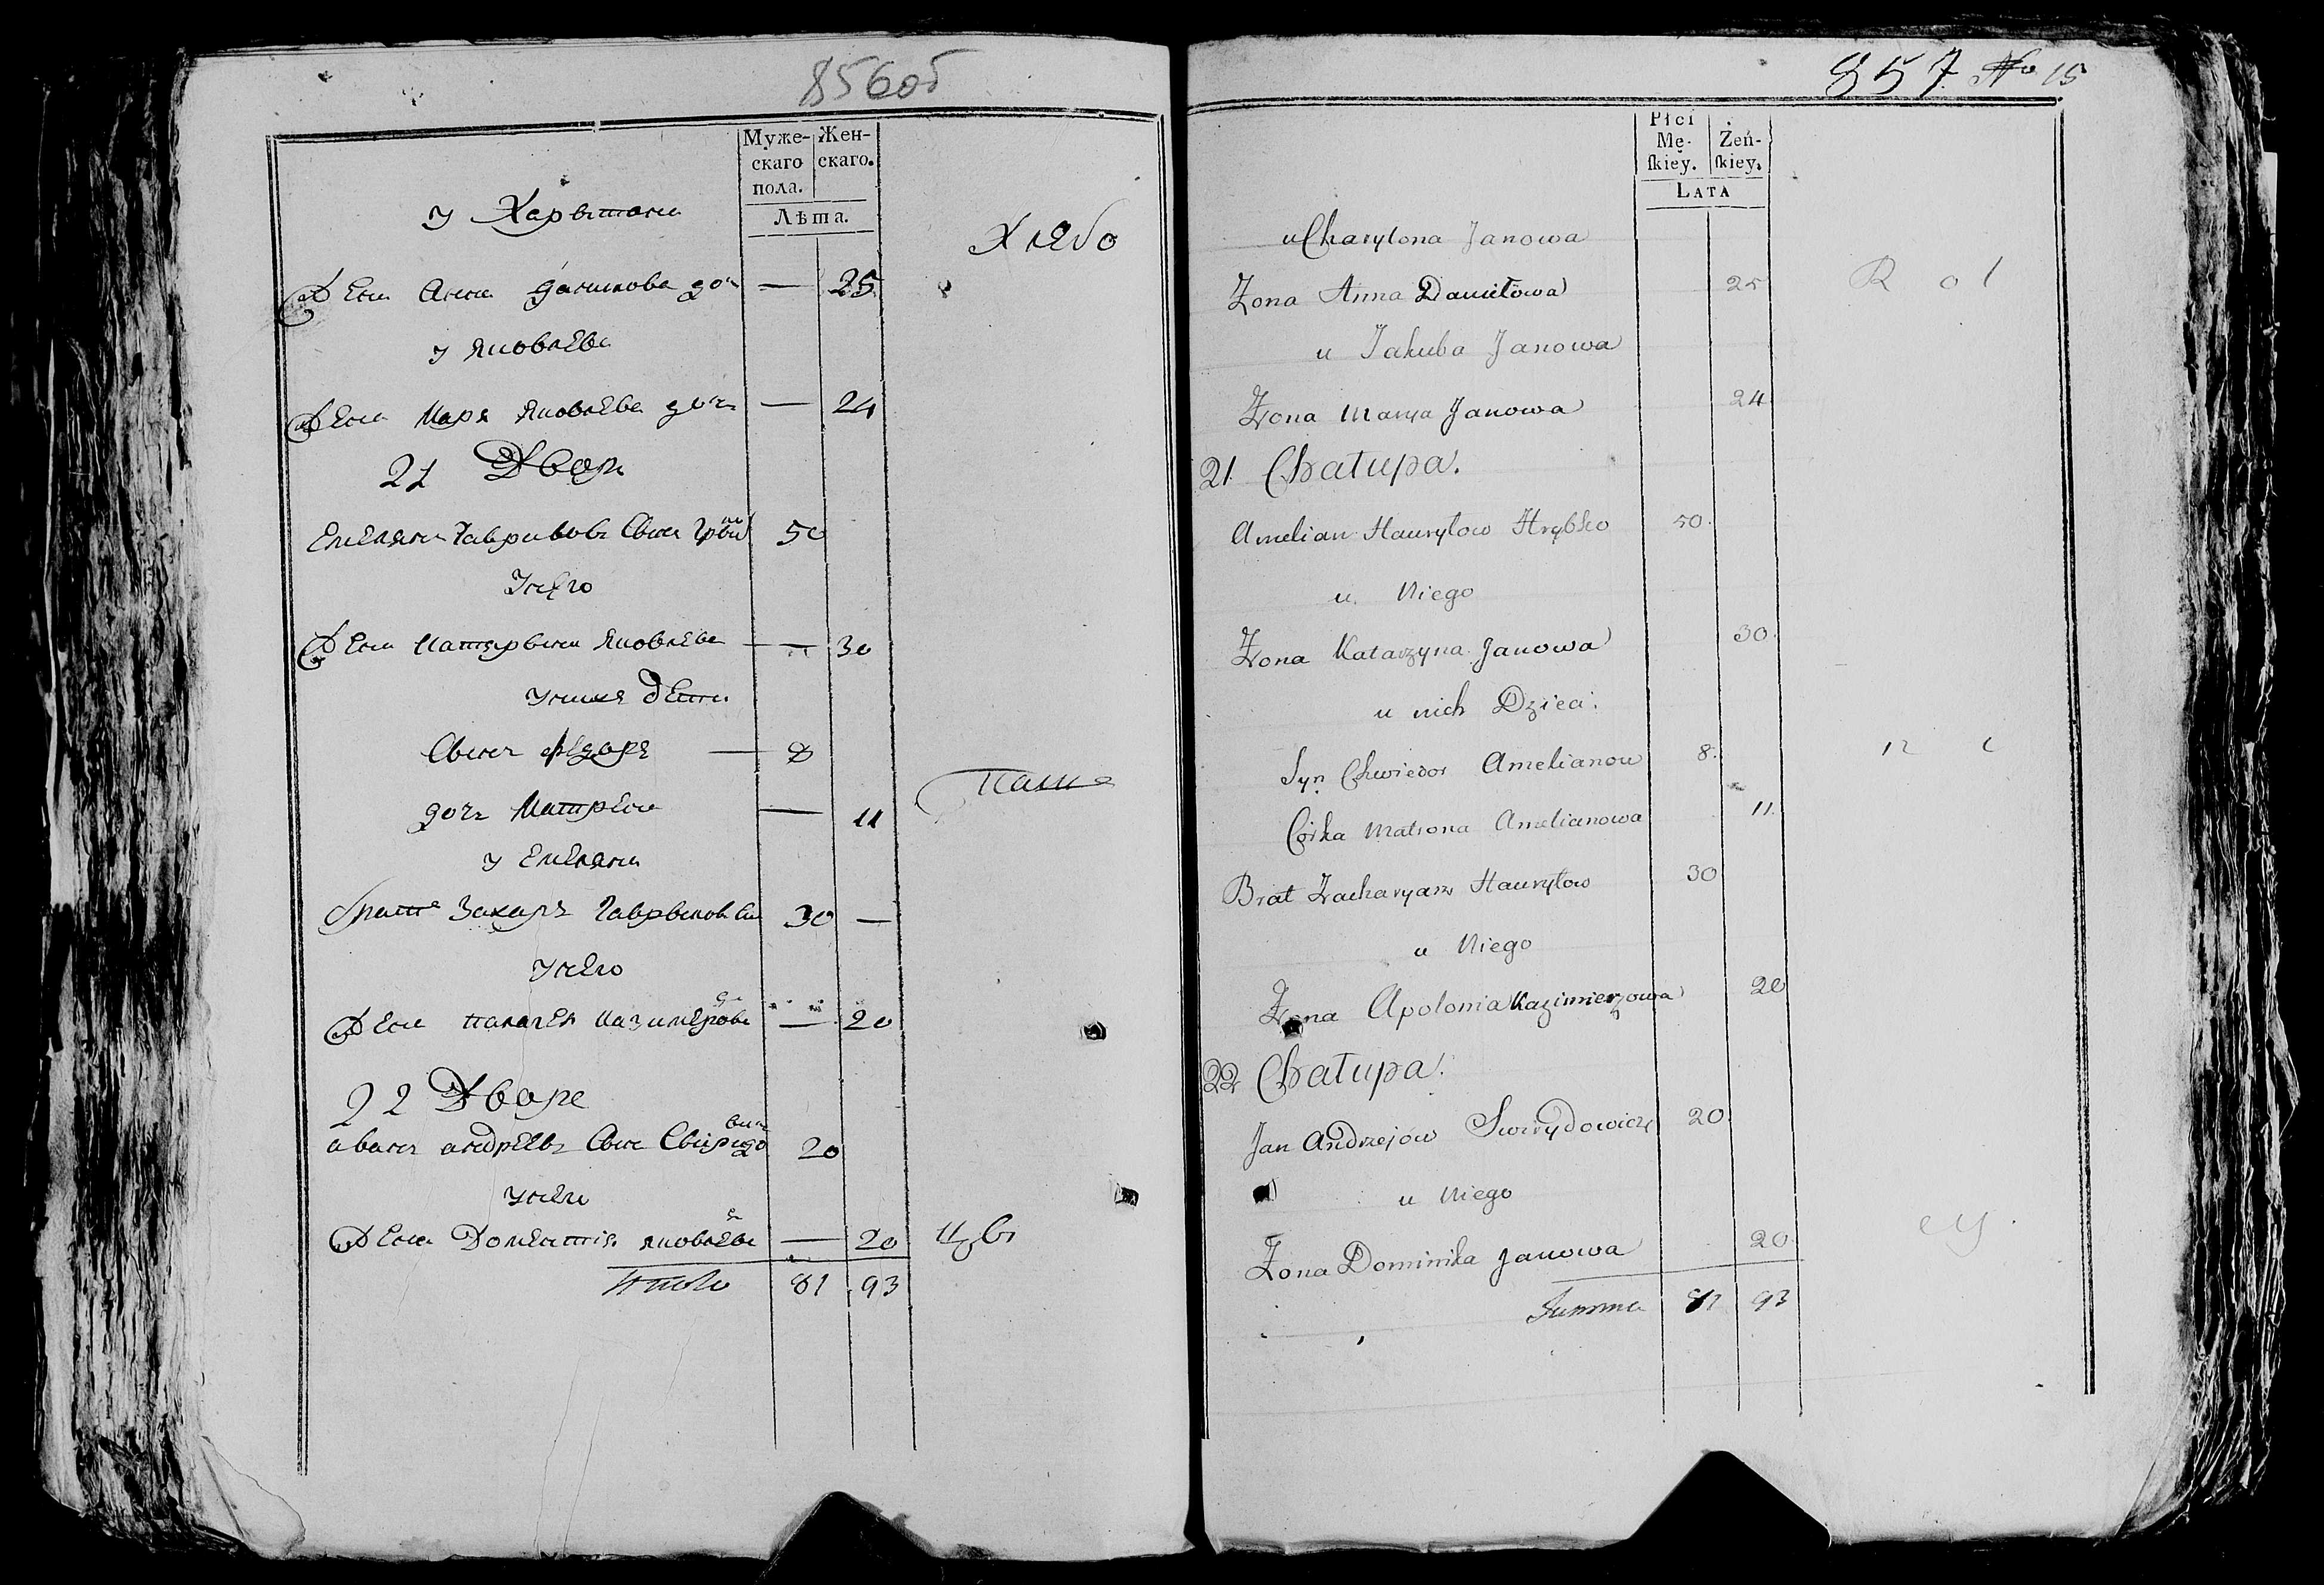 856об
Муже-
скаго
пола.
Жен-
скаго.
Лѣта.
у Харытона
Хлѣбо
Жена Анна Данилова доч — 25
у Яковлева
Жена Маря Яковлева доч — 24
21 Дворъ
Емелянъ Гавриловъ Сынъ 50
У него
Жена Катерына Яковлева — 30
у них дети
Сынъ Федоръ — 8
дочь Матрена — 11
у Емеляна
братъ Захаръ Гаврыловъ 30 —
У него
Жена Палагея Казимерова — 20
22 Дворе
иванъ андреевъ Сынъ Свиридовичъ 20
у него
Жена Доменикия Яковлева — 20
Итого 81 93
857 No 15
Płci
Mę-
ſkiey.
Żeń-
ſkiey.
LATA
u Charytona Janowa
Żona Anna Daniłowa 25
u Jakuba Janowa
Żona Marya Janowa 24
21 Chałupa.
Amelian Hauryłow Hrybko 50
u Niego
Żona Katarzyna Janowa 30
u nich Dzieci
Syn Chwiedor Amelianow 8
Córka Matrona Amelianowa 11
Brat Zacharyasz Hauryłow 30
u Niego
Żona Apolonia Kazimierzowa 20
22 Chałupa.
Jan Andrzejów Swirydowicz 20
u Niego
Żona Dominika Janowa 20
Summa 81 93